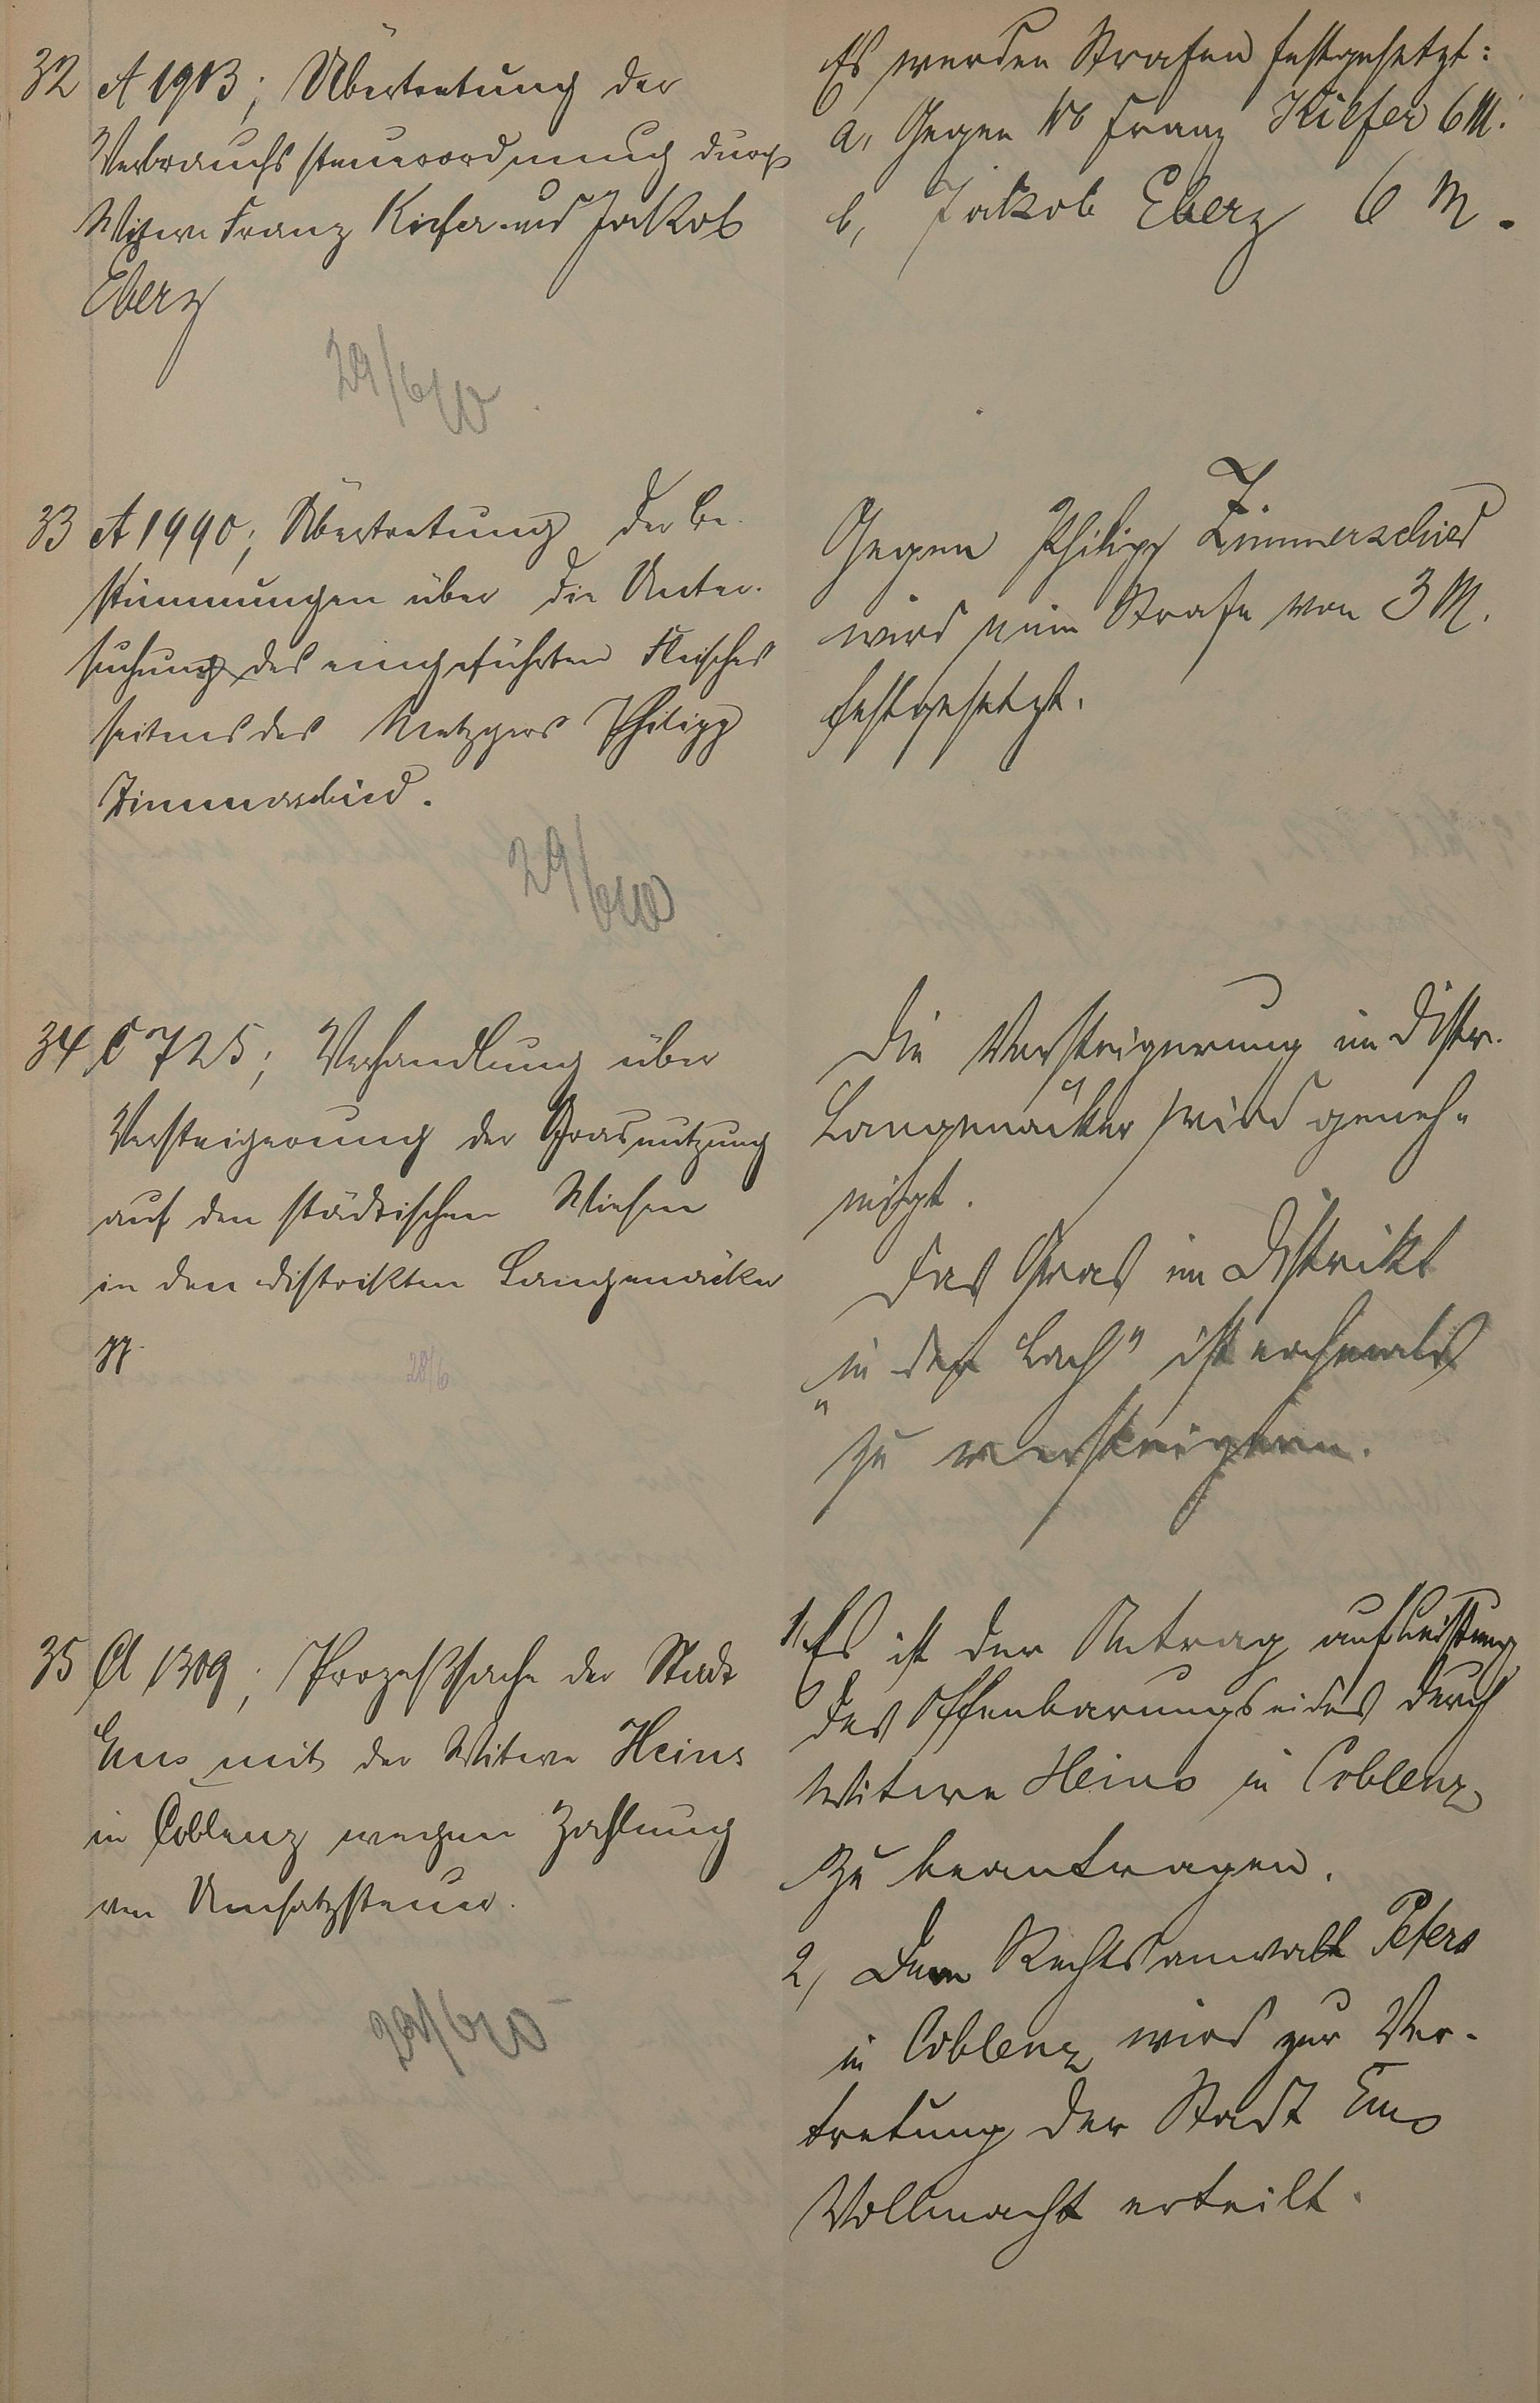 32 A 1913; Übertretung der
Verbrauchssteuerordnung durch
Witwe Franz Kiefer und Jakob
Eberz
29/6 10
Es werden Strafen festgesetzt:
a, Gegen Ww Franz Kiefer 6 M.
b, Jakob Eberz 6 M.
33 A 1990; Übertretung der Be-
stimmungen über die Unter-
suchung des eingeführten Fleisches
seitens des Metzgers Philipp
Zimmerschied.
29/6 10
Gegen Philipp Zimmerschied
wird eine Strafe von 3 M.
festgesetzt.
34 C 725; Verhandlung über
Versteigerung der Grasnutzung
auf den städtischen Wiesen
in den Distrikten Langenäcker
pp.
28/6
Die Versteigerung im Distr.
Langenäcker wird geneh-
migt.
Das Gras im Distrikt
"in der Bach" ist nochmals
zu versteigern.
35 A 1309; Prozeßsache der Stadt
Ems mit der Witwe Heins
in Coblenz wegen Zahlung
von Umsatzsteuer.
29/6 10
1, Es ist der Antrag auf Leistung
des Offenbarungseides durch
Witwe Heins in Coblenz
zu beantragen.
2, Dem Rechtsanwalt Peters
in Coblenz wird zur Ver-
tretung der Stadt Ems
Vollmacht erteilt.